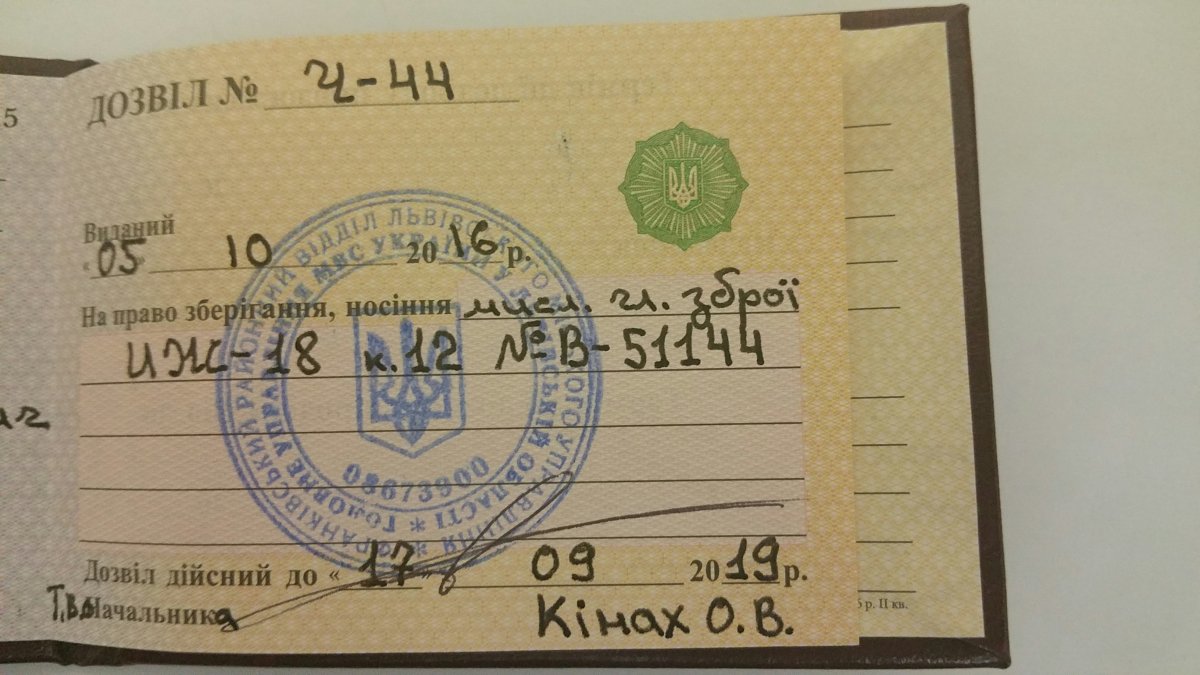 15
ДОЗВІЛ № Ч-44
Виданий
«05» 10 2016 р.
На право зберігання, носіння мисл. гл. зброї
ИЖ-18 к.12 №В-51144
ФРАНКІВСЬКИЙ РАЙОННИЙ ВІДДІЛ ЛЬВІВСЬКОГО УПРАВЛІННЯ
ГОЛОВНЕ УПРАВЛІННЯ МВС УКРАЇНИ У ЛЬВІВСЬКІЙ ОБЛАСТІ
08673900
Дозвіл дійсний до «17» 09 2019 р.
Т.В.о Начальника Кінах О. В.
р. II кв.